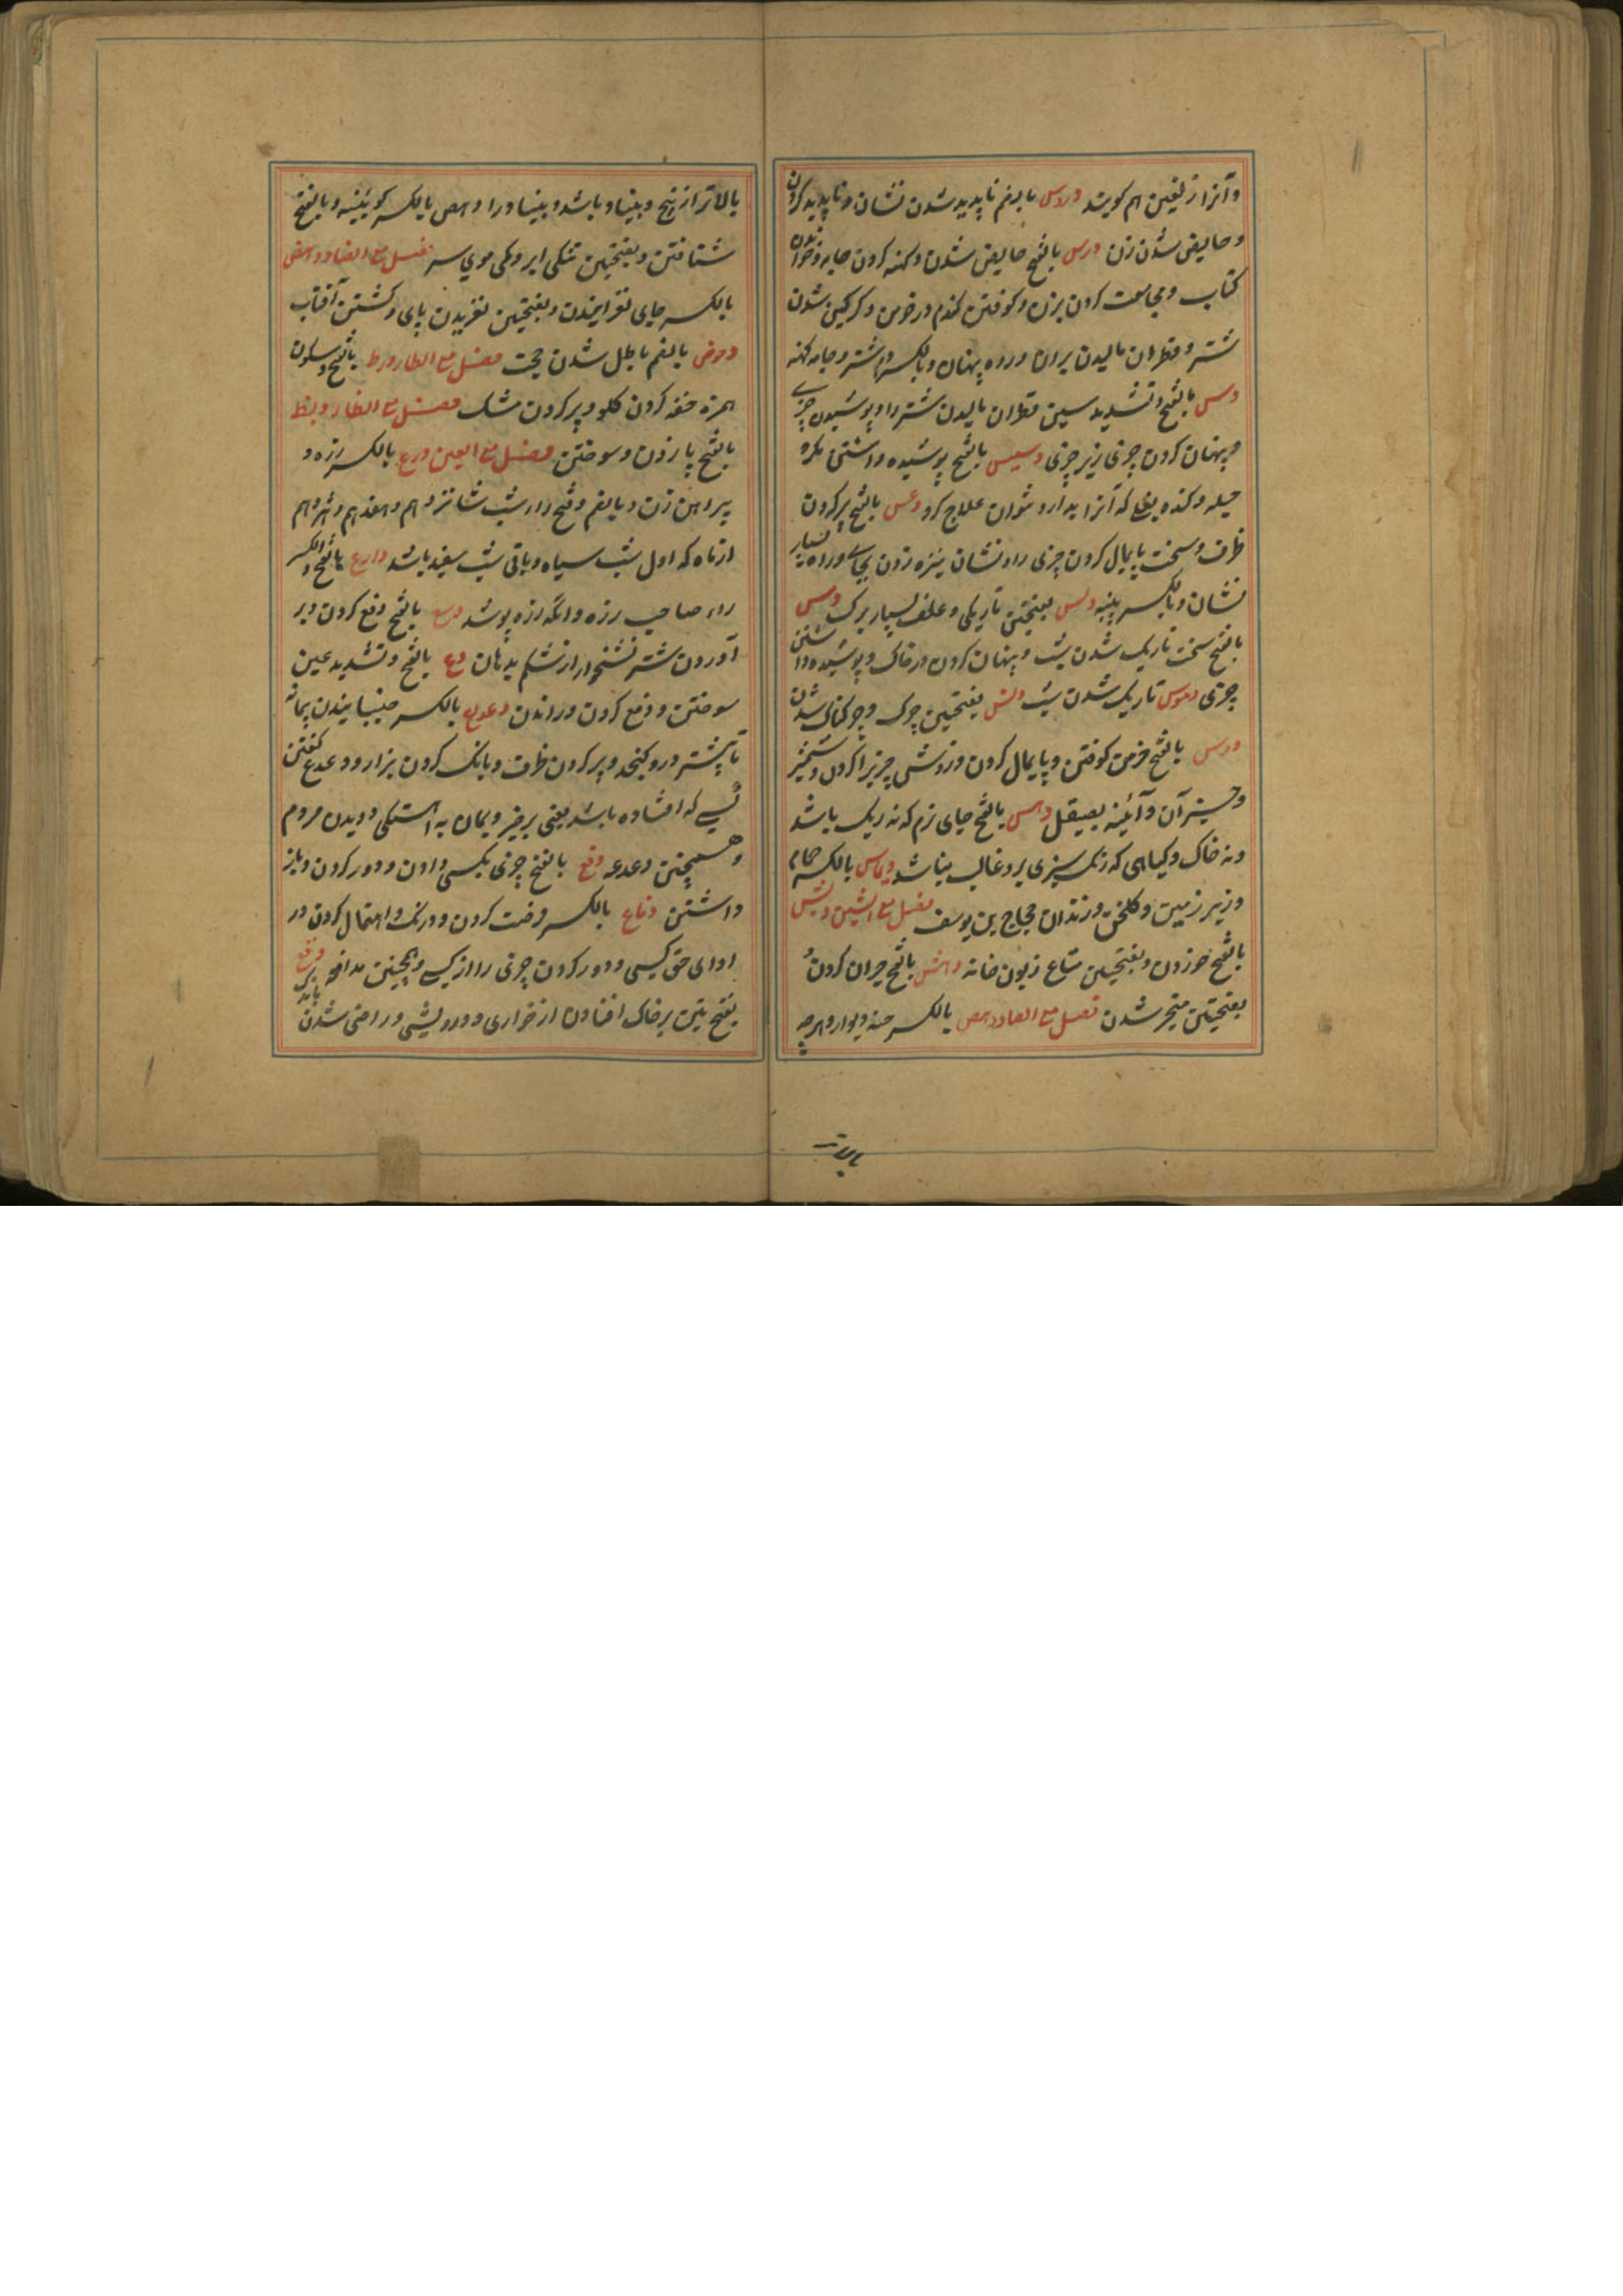 و آنرا زلیفن هم گویند دروس بالضم ناپدید شدن نشان و ناپدید کردن
و حایض شدن زن درس بالفتح حایض شدن و کهنه کردن جامه و خواندن
کتاب و مجامعت کردن بزن و کوفتن گندم در خرمن و گرگین شدن
شتر و قطران مالیدن بران و راه پنهان و بالکسر دم شتر و جامه کهنه
دس بالفتح و تشدید سین قطران مالیدن شتر را و پوشیدن چیزی
و پنهان کردن چیزی زیر چیزی دسیس بالفتح پوشیده داشتن مکر و
حیله و کنده بغل که آنرا بدارو نتوان علاج کرد دعس بالفتح پر کردن
ظرف و سخت پایمال کردن چیزی را و نشان نیزه زدن بجای و راه بسیار
نشان و بالکسر پنبه دلس بفتحتین تاریکی و علف بسیار برگ دمس
بالفتح سخت تاریک شدن شب و پنهان کردن در خاک و پوشیده داشتن
چیزی دموس تاریک شدن شب دنس بفتحتین چرک و چرکناک شدن
دوس بالفتح خرمن کوفتن و پایمال کردن و روشن چیزیرا کردن و شمشیر
و جز آن و آئینه بصیقل دهس بالفتح جای نرم که نه ریگ باشد
و نه خاک و گیاهی که رنگ سبزی برو غالب نباشد دیماس بالکسر حمام
و زیر زمین و گلخن و زندان حجاج بن یوسف فصل مع الشین دبش
بالفتح خوردن و بفتحتین متاع زبون خانه دهش بالفتح حیران کردن و
بفتحتین متحیر شدن فصل مع الصاد دعص بالکسر چینه دیوار و هرچه
بالاتر از بیخ و بنیاد باشد و بنیاد را دهص بالکسر گویند و بالفتح
شتافتن و بفتحتین تنکی ابرو و کمی موی سر فصل مع الضاد دحض
بالکسر جای لغزانیدن و بفتحتین لغزیدن پای و گشتن آفتاب
دحوض بالضم باطل شدن حجت فصل مع الطا دط بالفتح و سکون
همزه خفه کردن گلو و پر کردن مشک فصل مع الظا دلظ
بالفتح پا زدن و سوختن فصل مع العین درع بالکسر زره و
پیراهن زن و بالضم و فتح راء شب شانزدهم و هفدهم و هژدهم
از ماه که اول شب سیاه و باقی شب سفید باشد دارع بالفتح و الکسر
راء صاحب زره و انکه زره پوشد دسع بالفتح دفع کردن و بر
آوردن شتر نشخوار از شکم بدهان دع بالفتح و تشدید عین
سوختن و دفع کردن و راندن دعدع بالکسر جنبانیدن پیمانه
تا بیشتر درو گنجد و پر کردن ظرف و بانگ کردن بز را و دعدع گفتن
کسی که افتاده باشد یعنی برخیز و بمان به آهستگی دویدن مردم
و همچنین دعدعه دفع بالفتح چیزی بکسی دادن و دور کردن و باز
داشتن دفاع بالکسر دفعت کردن و درنگ و اهمال کردن در
ادای حق کسی و دور کردن چیزی را از کسی و همچنین مدافعه دقع
بفتحتین بر خاک افتادن از خواری و درویشی و راضی شدن
بالاتر